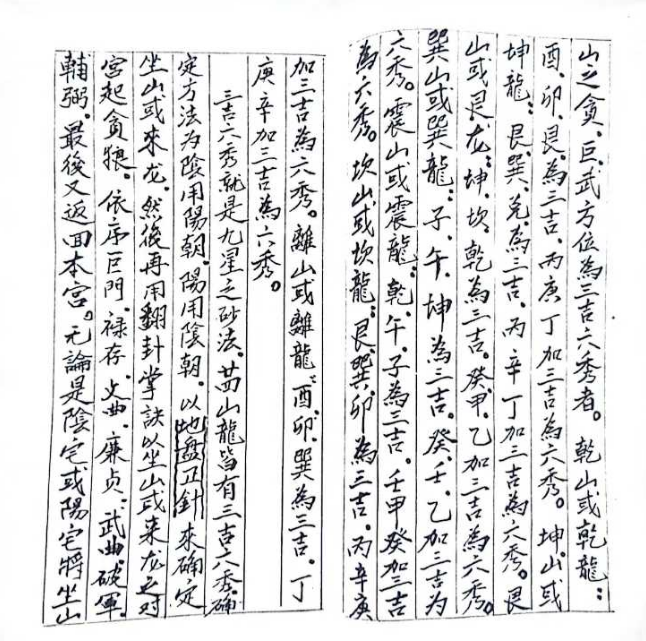 山之貪、巨、武方位為三吉六秀者。乾山或乾龍：
酉、卯、艮、為三吉、丙庚丁加三吉為六秀。坤山或
坤龍：艮、巽、兑為三吉、丙辛丁加三吉為六秀。艮
山或艮龙：坤、坎、乾為三吉。癸、甲、乙加三吉為六秀。
巽山或巽龍：子、午、坤為三吉。癸、壬、乙加三吉为
六秀。震山或震龍：乾、午、子為三吉。壬甲癸加三吉
為六秀。坎山或坎龍：艮、巽、卯為三吉。丙辛庚
加三吉為六秀。離山或離龍：酉、卯、巽為三吉。丁
庚辛加三吉為六秀。
三吉六秀就是九星之砂法。廿四山龍皆有三吉六秀。確
定方法为陰用陽朝、陽用陰朝。以地盤正針來確定
坐山或來龙。然後再用翻封掌訣以坐山或来龙之对
宮起貪狼。依序巨門、禄存、文曲、廉贞、武曲、破軍、
輔弼。最後又返回本宫。无論是陰宅或陽宅將坐山